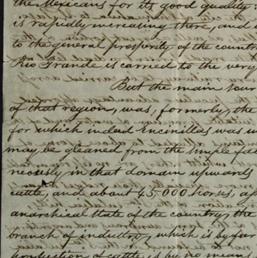 the Mexicans for its good quality
is rapidly increasing there, and
to the general prosperity of the countr
Rio Grande is carried to the very
But the main sour
of that region, was, formerly, the
for which indeed Encinillas was
may be gleaned from the simple
neously in that domain upwards
cattle, and about 45.000 horses,
anarchical state of the country, the
branch of industry, which is by far
production of cattle is by no means